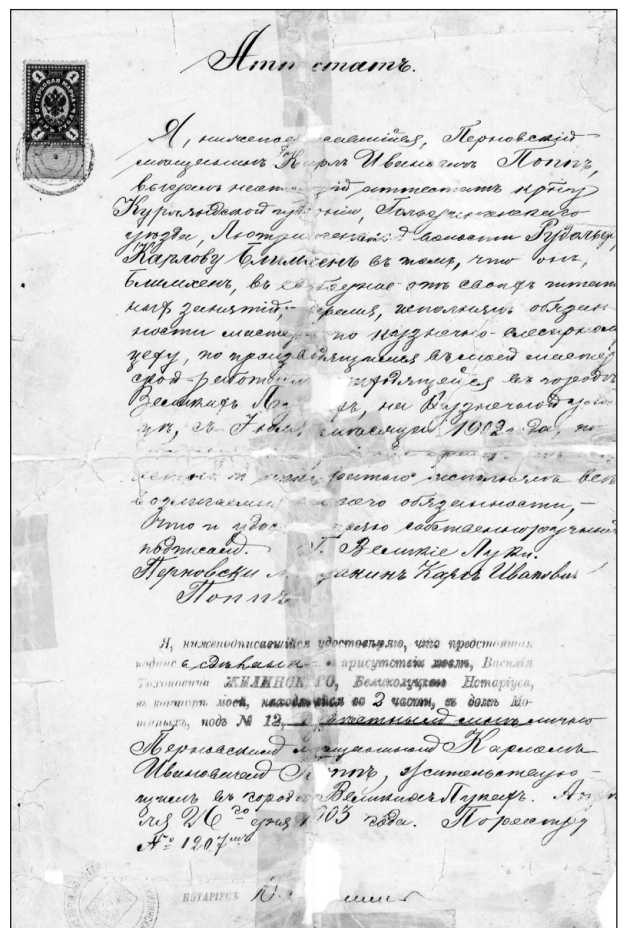 Аттестатъ.
1 ГЕРБОВАЯ МАРКА 1
Я, нижеподписавшійся, Перновскій
мѣщанинъ Карлъ Ивановичъ Поппъ,
выдалъ аттестатъ
Курляндской губерніи, Гольдингенскаго
уѣзда, волости Рудольфу
Карлову Блюмхенъ въ томъ, что онъ,
Блюмхенъ, въ свободное отъ своихъ
занятій, время, исполнялъ обязан-
ности мастера по кузнечно-слесарному
цеху, по производящимся въ моей мастер
ской работамъ въ городѣ
Великихъ Лукахъ, на Кузнечной
съ Іюля мѣсяца 1902 года,
исполнялъ всѣ
возлагаемыя на него обязанности, –
что и удостовѣряю собственноручной
подписью. Г. Великіе Луки.
Перновскій мѣщанинъ Карлъ Ивановъ
Поппъ
Я, нижеподписавшійся удостовѣряю, что предстоящая
подпись сдѣлана въ присутствіи моемъ, Василія
Тихоновича ЖИЛИНСКАГО, Великолуцкаго Нотаріуса,
въ конторѣ моей, находящейся во 2 части, въ домѣ Мо-
подъ № 12, лично
Перновскимъ мѣщаниномъ Карломъ
Ивановичемъ Поппъ, жительствую-
щимъ въ городѣ Великихъ Лукахъ. Апрѣ
ля 26 го дня 1903 года. По реестру
№ 1207
НОТАРІУСЪ